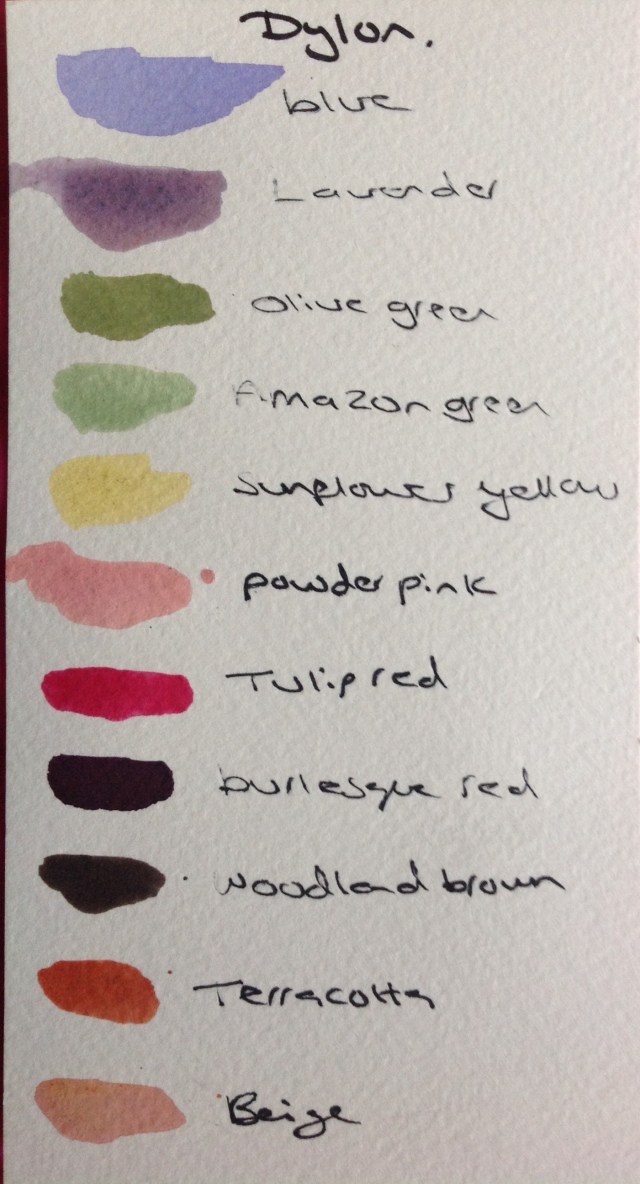 Dylon.
blue
Lavender
Olive green
Amazon green
Sunflower yellow
powder pink
Tulip red
burlesque red
woodland brown
Terracotta
Beige